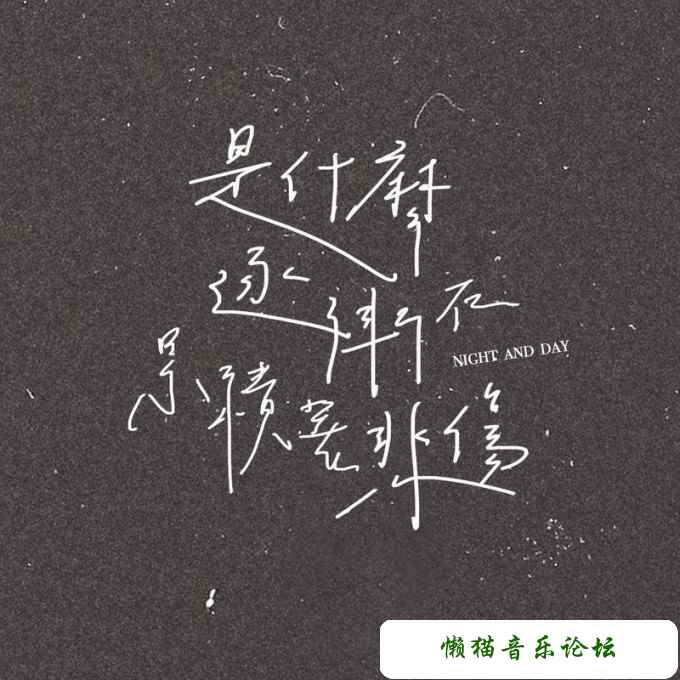 是什麼
逐漸在
NIGHT AND DAY
累積著悲傷
懒猫音乐论坛